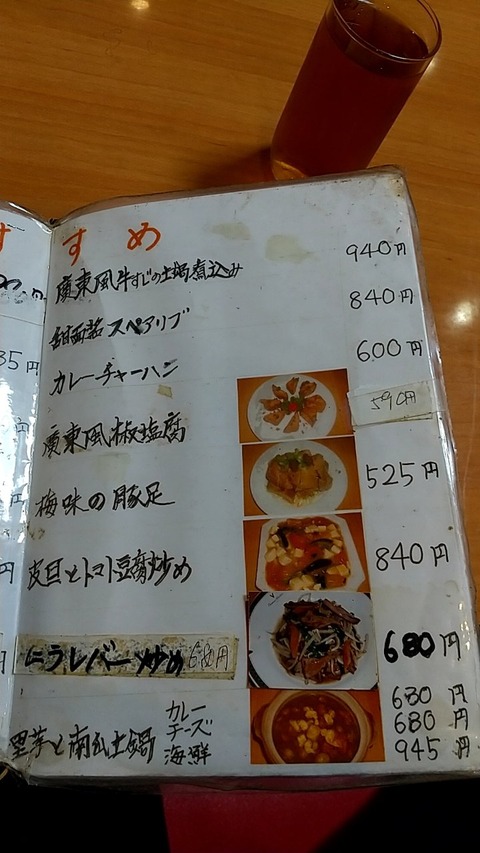 すすめ
廣東風牛すじの土鍋煮込み 940円
スペアリブ 840円
カレーチャーハン 600円
廣東風椒塩腐 590円
梅味の豚足 525円
皮旦とトマト豆腐炒め 840円
ニラレバー炒め 680円 680円
里芋と南瓜土鍋 カレー 680円
チーズ 680円
海鮮 945円
35円
円
円